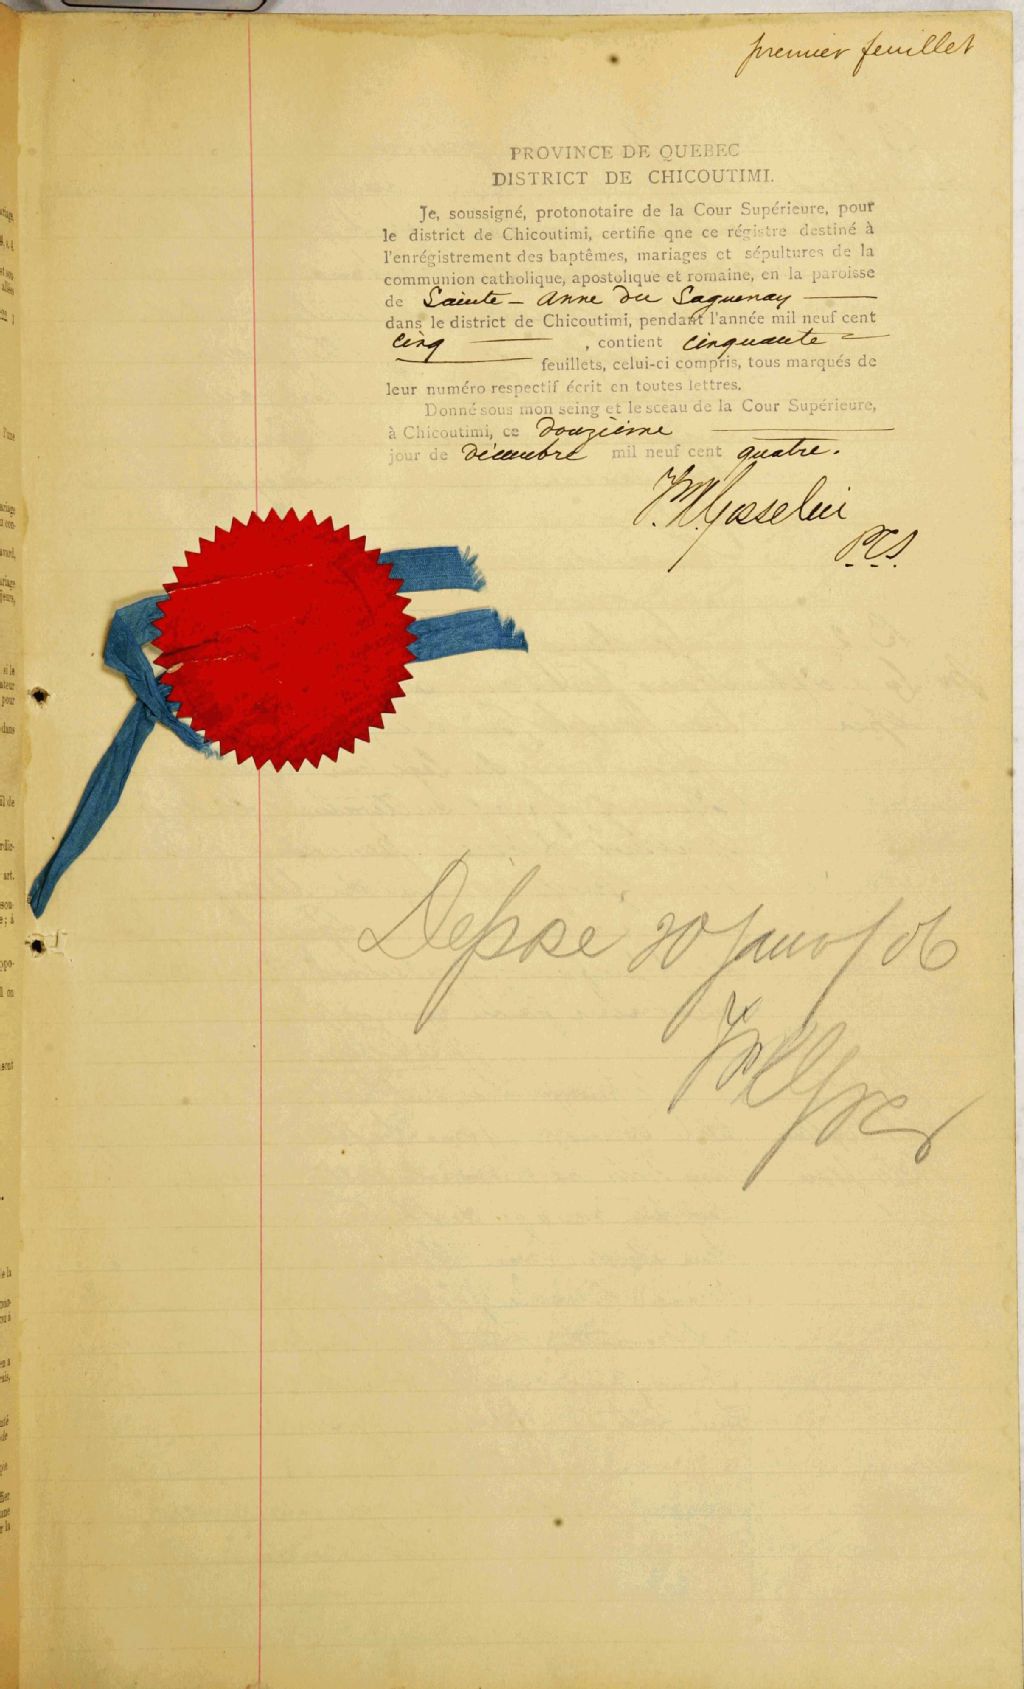 premier feuillet
PROVINCE DE QUEBEC
DISTRICT DE CHICOUTIMI.
Je, soussigné, protonotaire de la Cour Supérieure, pour
le district de Chicoutimi, certifie qne ce régistre destiné à
l'enrégistrement des baptêmes, mariages et sépultures de la
communion catholique, apostolique et romaine, en la paroisse
de Sainte-Anne du Saguenay
dans le district de Chicoutimi, pendant l'année mil neuf cent
cinq , contient cinquante
feuillets, celui-ci compris, tous marqués de
leur numéro respectif écrit en toutes lettres.
Donné sous mon seing et le sceau de la Cour Supérieure,
à Chicoutimi, ce douzième
jour de décembre mil neuf cent quatre.
Gosselin
P.C.S.
Déposé 20 janv/06